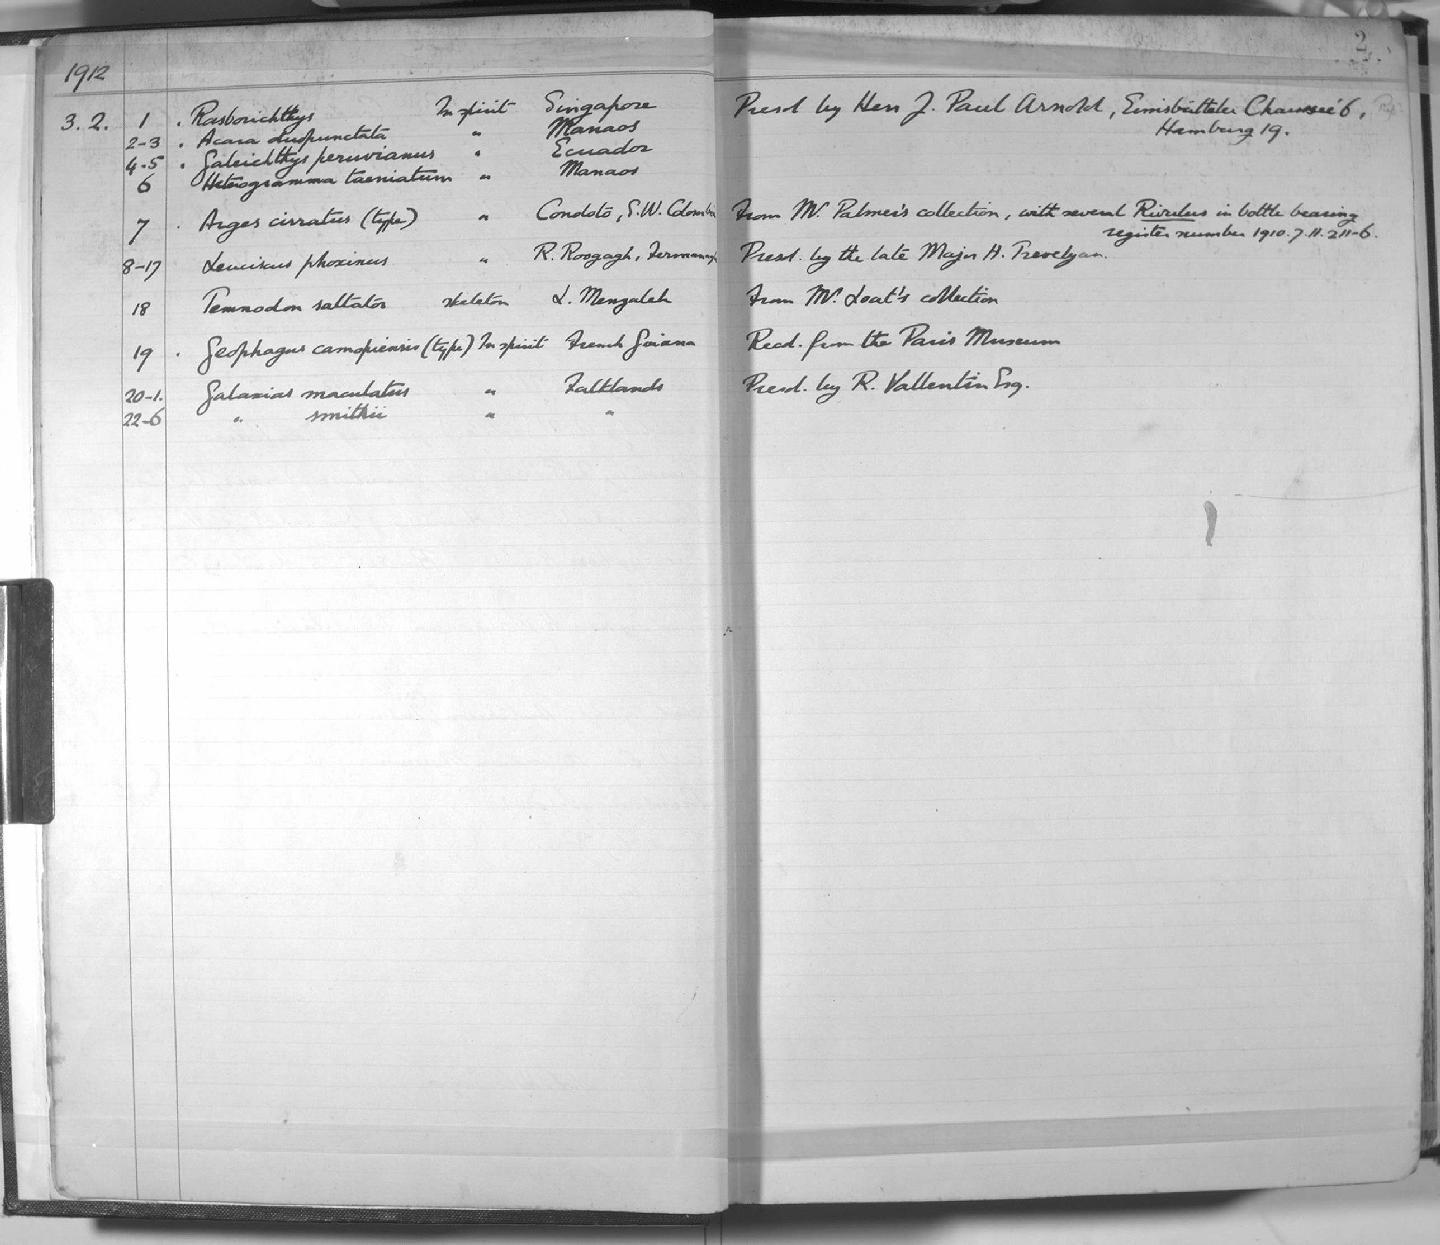 2.
1912
3. 2. 1 . Rasborichthys In spirit Singapore Presd by Herr J. Paul Arnold, Eimsbütteler Chaussée 6,
Hamburg 19.
2-3 . Acara duopunctata " Manaos
4-5 . Galeichthys peruvianus " Ecuador
6 Heterogramma taeniatum " Manaos
7 . Arges cirratus (type) " Condoto, S.W. Colombia From Mr. Palmer's collection, with several Rivulus in bottle bearing
register number 1910.7.11.211-6.
8-17 Leuciscus phoxinus " R. Roogagh, Fermanagh Presd. by the late Major H. Trevelyan.
18 Temnodon saltator skeleton L. Menzaleh From Mr. Loat's collection
19 . Geophagus camopiensis (type) In spirit French Guiana Recd. from the Paris Museum
20-1. Galaxias maculatus " Falklands Presd. by R. Vallentin Esq.
22-6 " smithii " "